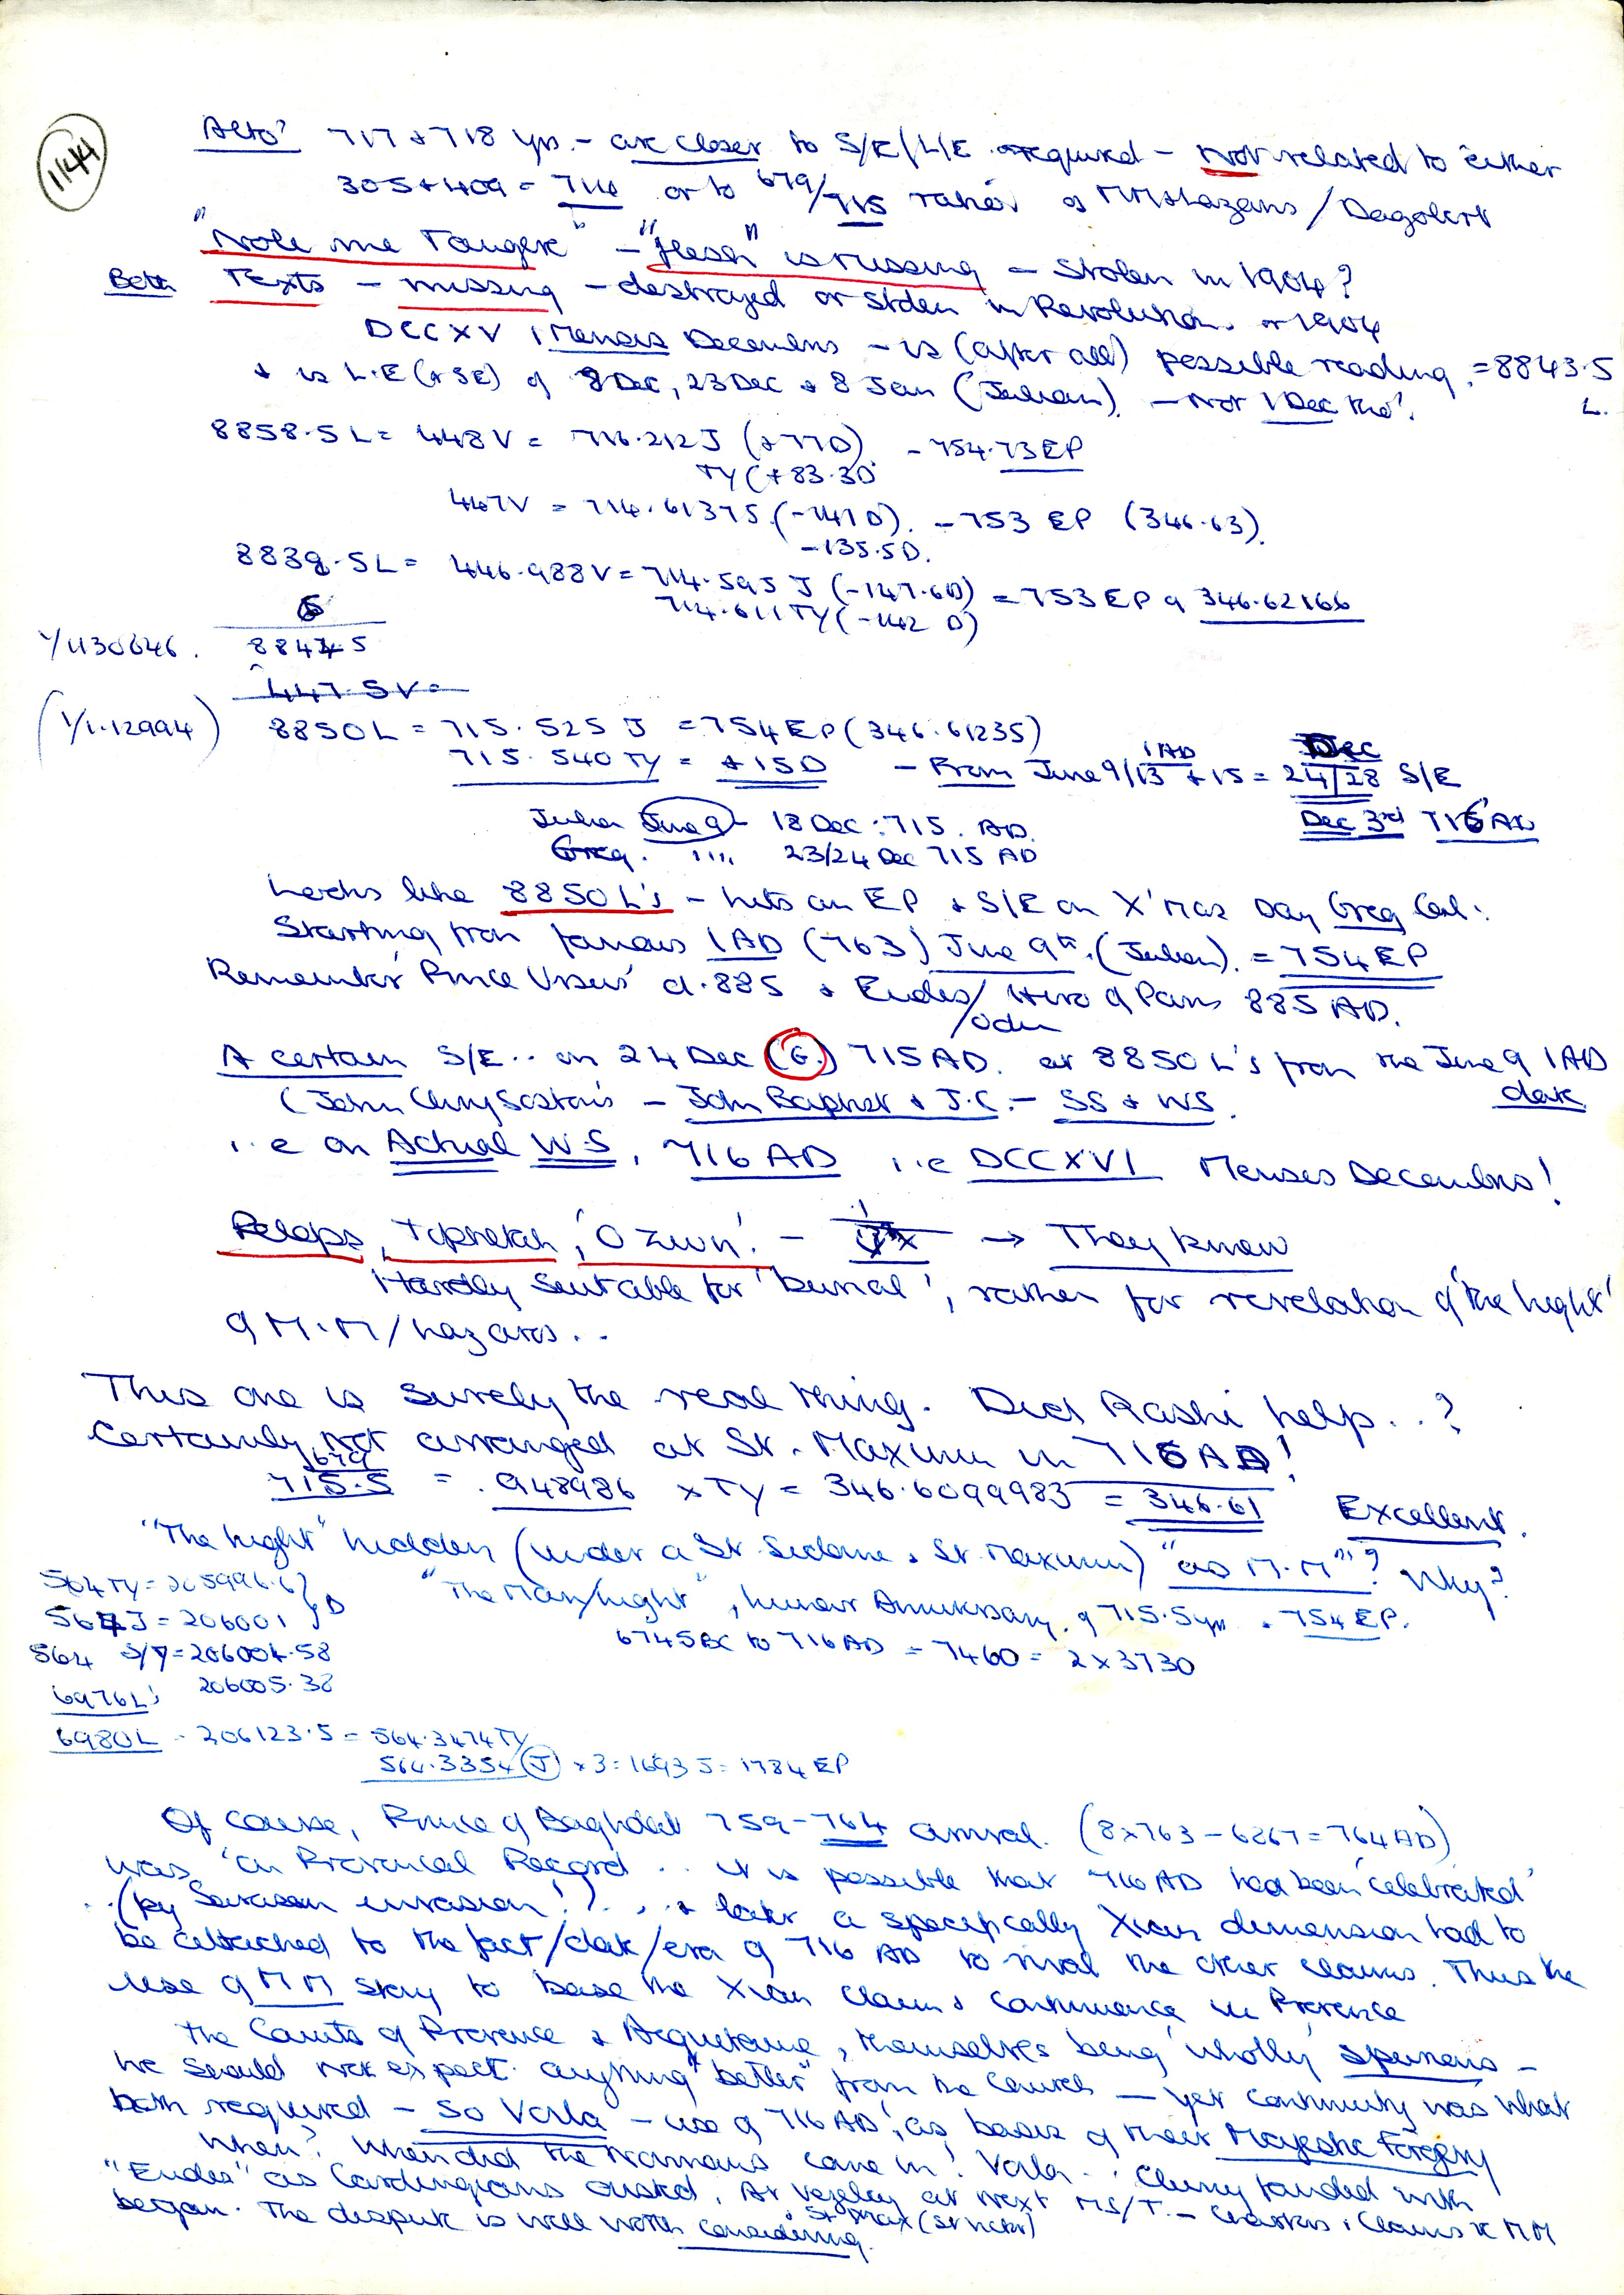 1144
Also? 717 & 718 yrs. - are closer to S/E/L/E required - Not related to either
305 + 409 = 714 or to 679/715 ratio of MM & Lazarus / Dagobert
"Noli me Tangere" - "flesh" is missing - Stolen in 1904?
Both Texts - missing - destroyed or stolen in Revolution or 1904
DCCXV 1 Mensis Decembris - is (after all) possible reading = 8843.5 L.
& is L.E (& SE) of 8 Dec, 23 Dec & 8 Jan (Julian). - Not 1 Dec tho'.
8858.5 L = 448 V = 716.212 J (+77D) - 754.73 EP
TY (+83.3D
447 V = 714.61375 (-141D). - 753 EP (346.63).
-135.5D.
8839.5 L = 446.988 V = 714.595 J (-147.6D) = 753 EP of 346.62166
714.611 TY (-142 D)
6
1/1130646. 8844.5
447.5 V =
(1/1.12994) 8850 L = 715.525 J = 754 EP (346.61235)
715.540 TY = +15D - From June 9/13 1AD + 15 = Dec 24/28 S/E
Julian June 9 - 18 Dec : 715. AD. Dec 3rd 716 AD
Greg. '''' 23/24 Dec 715 AD
Looks like 8850 L's - hits an EP & S/E on X'mas Day Greg Cal:
Starting from famous 1AD (763) June 9th. (Julian). = 754 EP
Remember Prince Ursus' d. 885 & Eudes/ Hero of Paris 885 AD.
/Odo
A certain S/E .. on 24 Dec (G.) 715 AD. at 8850 L's from the June 9 1AD
date
(John Chrysostom's - John Baptist & J.C. - SS & WS.
i.e on Actual W.S, 716 AD i.e DCCXVI Menses Decembris!
Pelops, Tiphareth, 'O zwn'. - → They knew
Hardly suitable for 'burial', rather for revelation of 'the light'
of M.M/Lazarus..
This one is surely the real thing. Did Rashi help..?
Certainly not arranged at St. Maximin in 716 AD!
679
715.5 = .948986 x TY = 346.6099983 = 346.61 Excellent.
"The light" hidden (under a St. Sidoine & St. Maximin) "as M.M"? Why?
564 TY = 205996.6 } D
"The Mary/light", lunar Anniversary of 715.5 yrs & 754 EP.
564 J = 206001
6745 BC to 716 AD = 7460 = 2 x 3730
564 S/Y = 206004.58
6976 L's 206005.38
6980 L - 206123.5 = 564.3474 TY
564.3354 (J) x 3 = 1693 J = 1784 EP
Of course, Prince of Baghdad 759-764 arrival. (8x763 - 6267 = 764 AD)
was 'on Provencal Record .. it is possible that 716 AD had been 'celebrated'
..(by Saracen invasion!)... & later a specifically Xian dimension had to
be attached to the fact/date/era of 716 AD to rival the other claims. Thus the
use of MM story to base the Xian claim & continuance in Provence
The Counts of Provence & Acquitaine, themselves being wholly spurious -
we should not expect anything "better" from the Church - yet continuity was what
both required - So Voila - use of 716 AD, as basis of their Majestic Forgery
When? When did the Normans come in! Voila.. Cluny founded with
"Eudes" as Carolingians ousted, At Vezelay at next MS/T. - Charters, Claims to MM
St Max (St Victor)
began. The dispute is well worth considering.